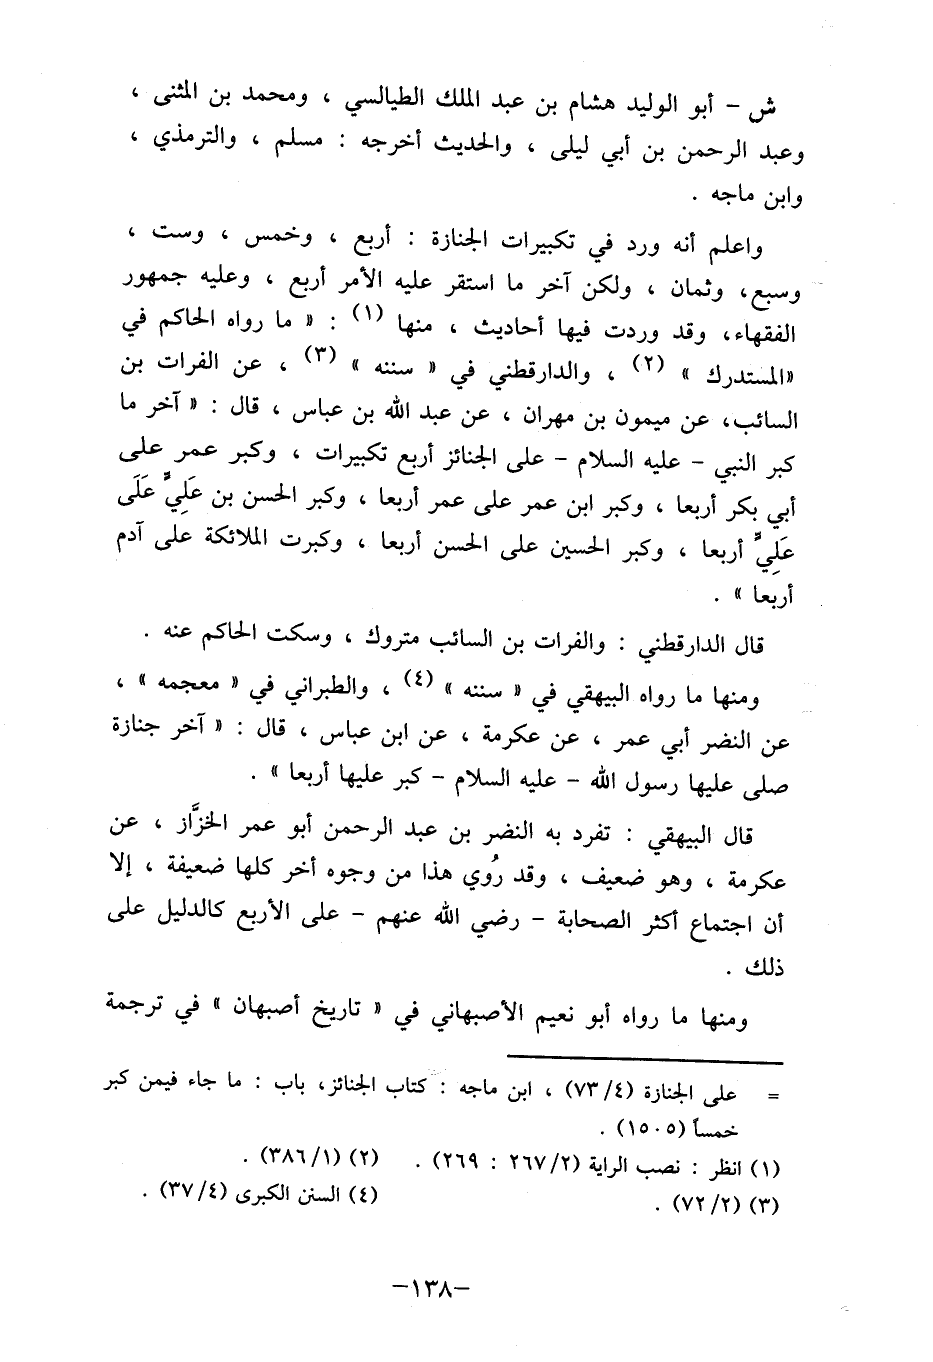 ش – أبو الوليد هشام بن عبد الملك الطيالسي ، ومحمد بن المثنى ،
وعبد الرحمن بن أبي ليلى ، والحديث أخرجه : مسلم ، والترمذي ،
وابن ماجه .
واعلم أنه ورد في تكبيرات الجنازة : أربع ، وخمس ، وست ،
وسبع، وثمان ، ولكن آخر ما استقر عليه الأمر أربع ، وعليه جمهور
الفقهاء، وقد وردت فيها أحاديث ، منها (١) : « ما رواه الحاكم في
«المستدرك » (٢) ، والدارقطني في « سننه » (٣) ، عن الفرات بن
السائب، عن ميمون بن مهران ، عن عبد الله بن عباس ، قال : « آخر ما
كبر النبي – عليه السلام – على الجنائز أربع تكبيرات ، وكبر عمر على
أبي بكر أربعا ، وكبر ابن عمر على عمر أربعا ، وكبر الحسن بن عَلِيٍّ عَلَى
عَلِيٍّ أربعا ، وكبر الحسين على الحسن أربعا ، وكبرت الملائكة على آدم
أربعا » .
قال الدارقطني : والفرات بن السائب متروك ، وسكت الحاكم عنه .
ومنها ما رواه البيهقي في « سننه » (٤) ، والطبراني في « معجمه » ،
عن النضر أبي عمر ، عن عكرمة ، عن ابن عباس ، قال : « آخر جنازة
صلى عليها رسول الله – عليه السلام – كبر عليها أربعا » .
قال البيهقي : تفرد به النضر بن عبد الرحمن أبو عمر الخزَّاز ، عن
عكرمة ، وهو ضعيف ، وقد رُوي هذا من وجوه أخر كلها ضعيفة ، إلا
أن اجتماع أكثر الصحابة – رضي الله عنهم – على الأربع كالدليل على
ذلك .
ومنها ما رواه أبو نعيم الأصبهاني في « تاريخ أصبهان » في ترجمة
= على الجنازة (٧٣/٤) ، ابن ماجه : كتاب الجنائز، باب : ما جاء فيمن كبر
خمساً (١٥٠٥) .
(١) انظر : نصب الراية (٢٦٧/٢ : ٢٦٩) . (٢) (٣٨٦/١) .
(٣) (٧٢/٢) . (٤) السنن الكبرى (٣٧/٤) .
–١٣٨–